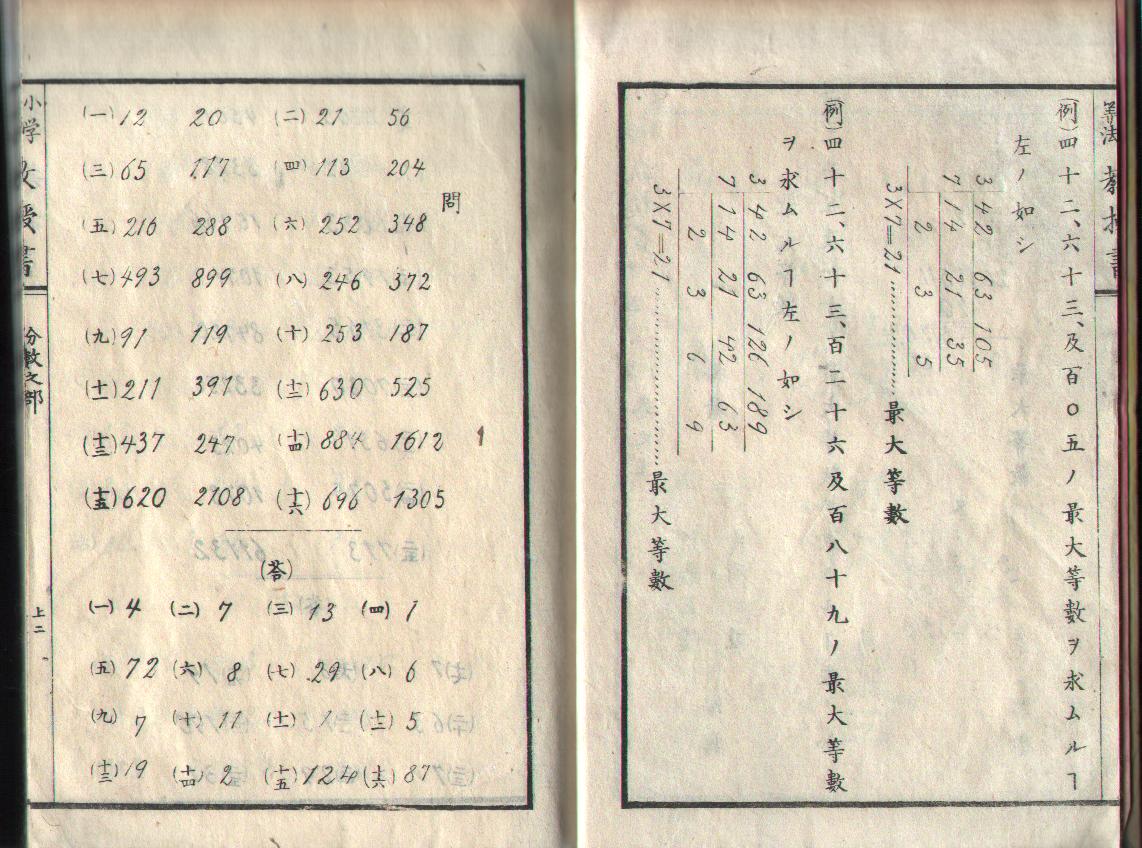 (例)四十二、六十三、及百〇五ノ最大等數ヲ求ムルヿ
左ノ如シ
3 42 63 105
7 14 21 35
2 3 5
3×7=21……………最大等數
(例)四十二、六十三、百二十六及百八十九ノ最大等數
ヲ求ムルヿ左ノ如シ
3 42 63 126 189
7 14 21 42 63
2 3 6 9
3×7=21……………………最大等數
問
(一)12 20 (二)21 56
(三)65 117 (四)113 204
(五)216 288 (六)252 348
(七)493 899 (八)246 372
(九)91 119 (十)253 187
(十一)211 397 (十二)630 525
(十三)437 247 (十四)884 1612
(十五)620 2108 (十六)696 1305
(荅)
(一)4 (二)7 (三)13 (四)1
(五)72 (六)8 (七)29 (八)6
(九)7 (十)11 (十一)1 (十二)5
(十三)19 (十四)2 (十五)124 (十六)87
小学教授書 分數之部 上二